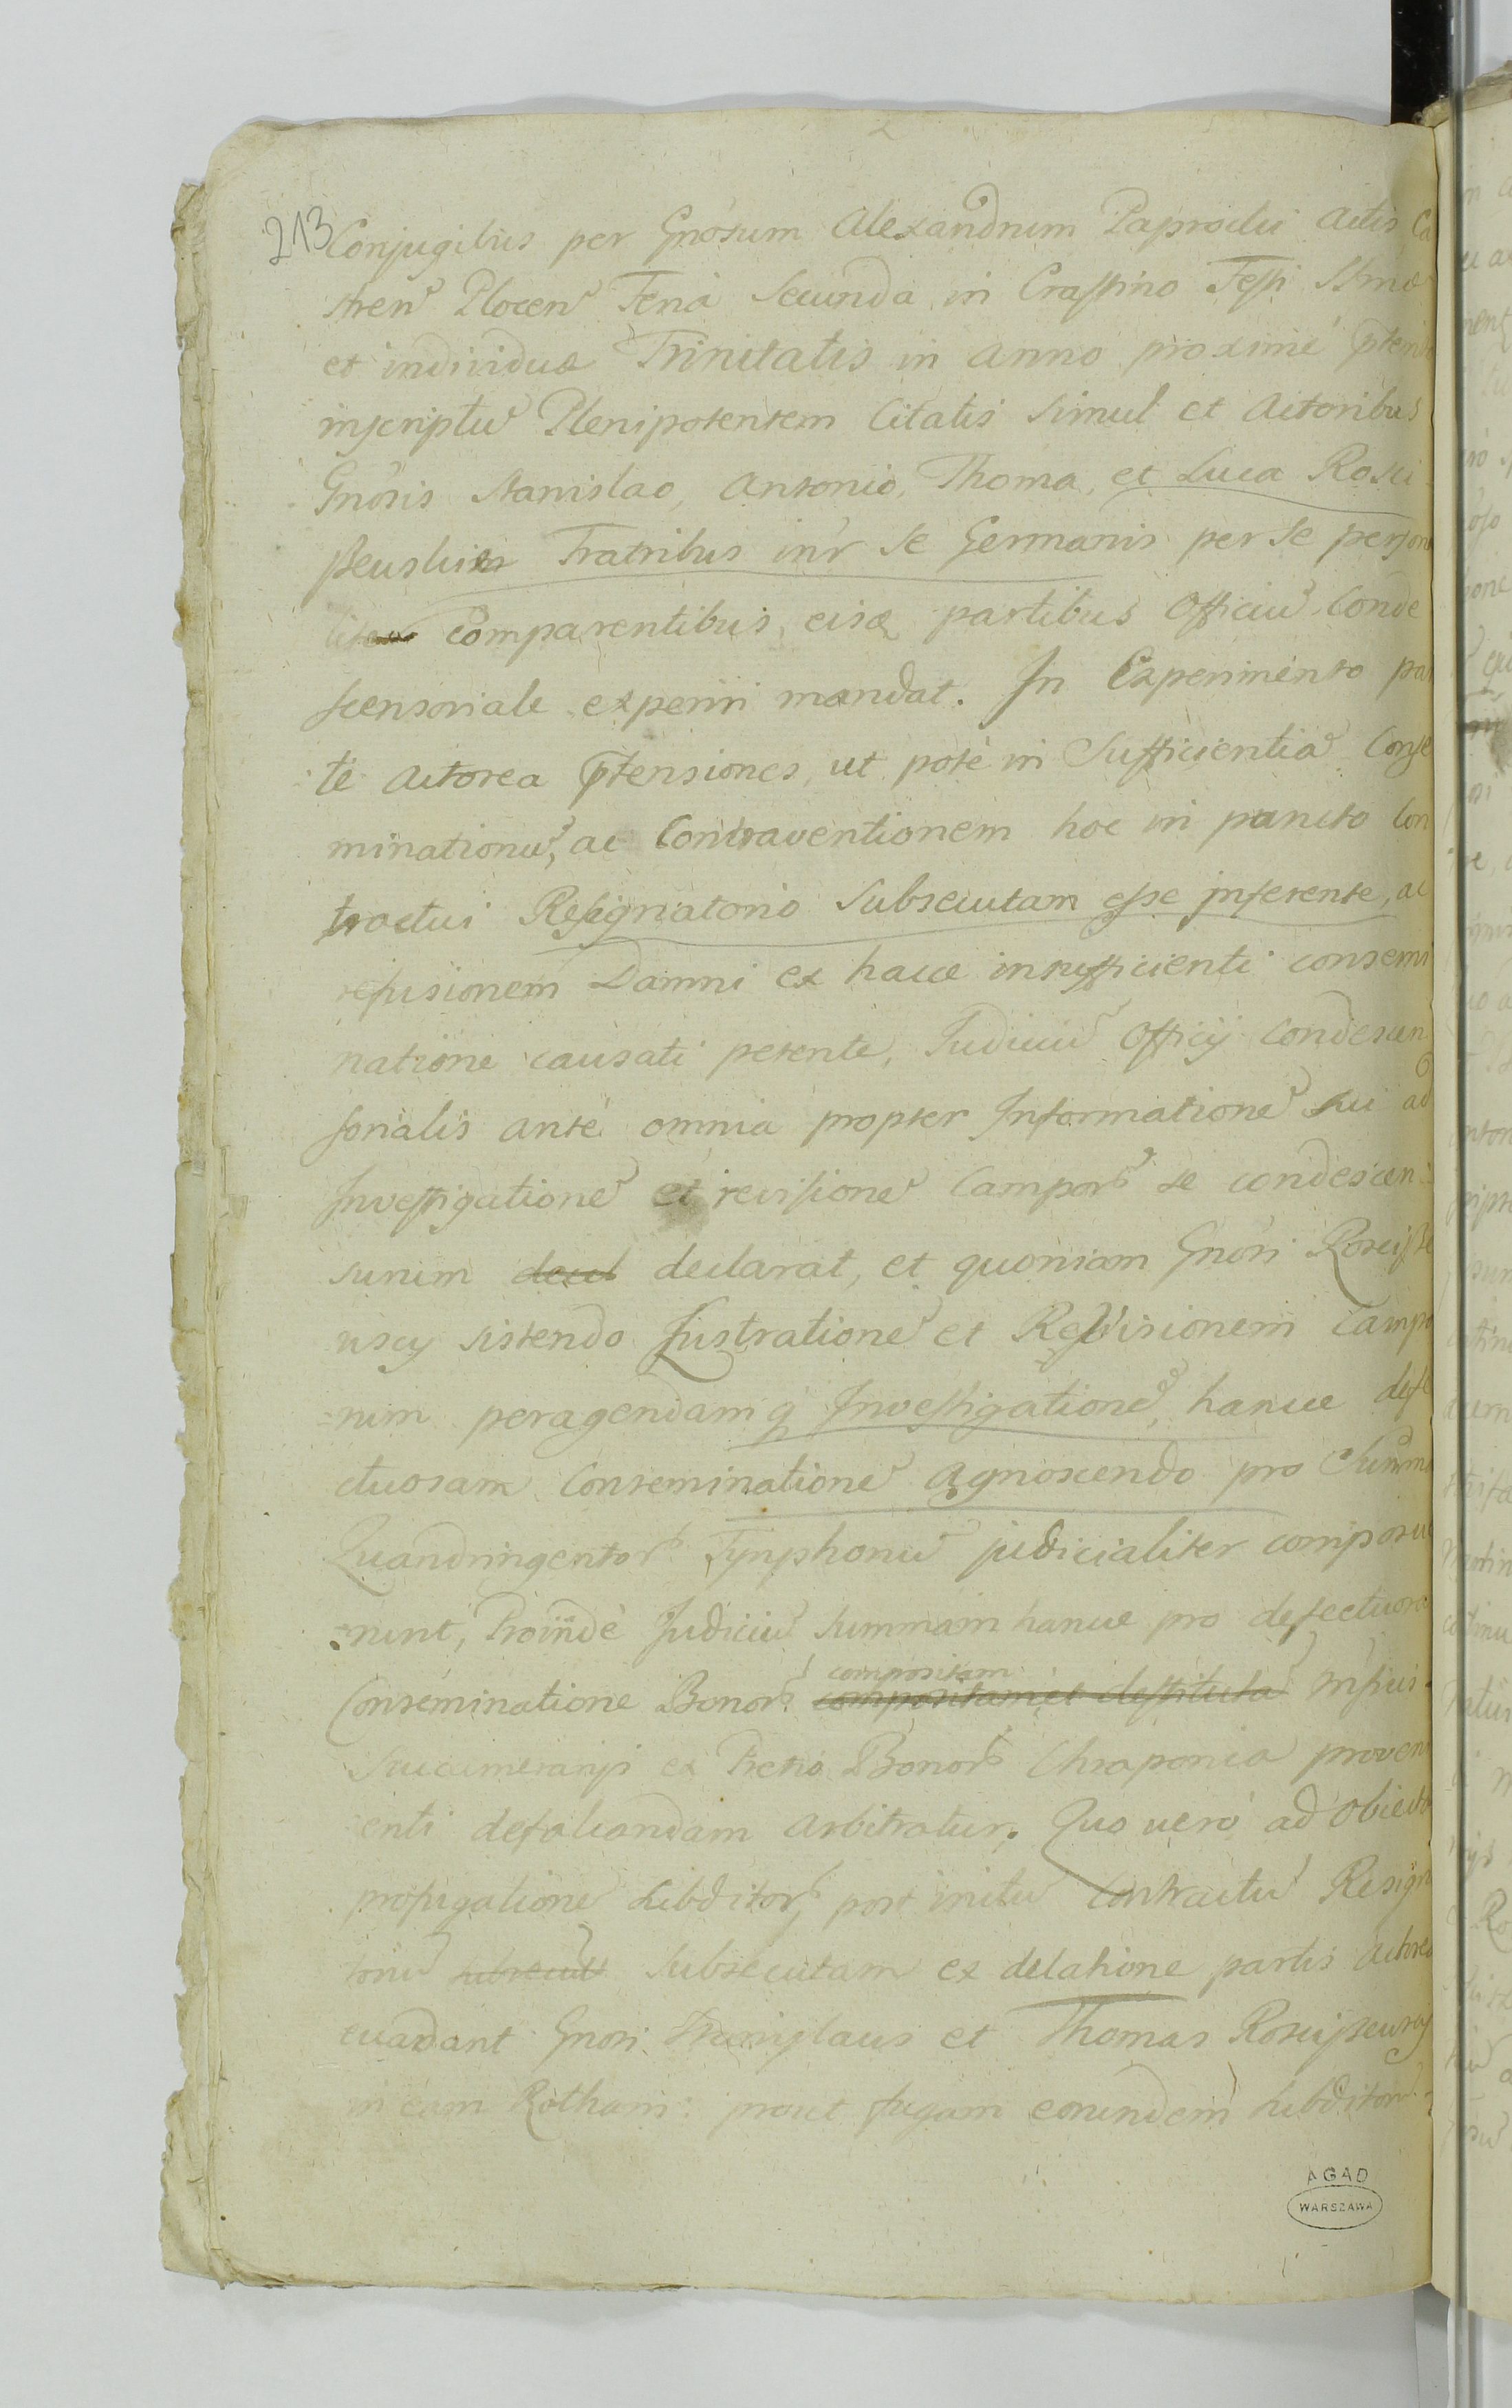 213
Conjugibus per Gnosum Alexandrum Paprocki Actis Ca
stren Plocen Feria Secunda in Crastino Festi Ssmæ
et individuæ Trinitatis in anno proximé pterito
inscriptu Plenipotentem Citatis simul et Actoribus
Gnosis Stanislao, Antonio, Thoma, et Luca Rosci
szeuskim Fratribus intr se Germanis per se persona
liter Comparentibus, eisq partibus Officiu Conde
scensoriale experiri mandat. In Experimento par
te Actorea ptensiones, ut poté in Sufficientia Conse
minationu, ac Contraventionem hoc in puncto Con
tractui Resignatorio subsecutam esse inferente, ac
refusionem Damni ex hacce insufficienti consemi
natione causati petente, Judiciu Officij Condescen
sorialis anté omnia propter Informatione sui ad
Investigatione et revisione Campor se condescen
surum decl declarat, et quoniam Gnosi Roscisze
uscy sistendo Lustratione et Revisionem Campo
rum peragendamq Investigatione, hancce defe
ctuosam Conseminatione agnoscendo pro Summa
Quandringentor Tynphonu judicialiter composue
runt, Proindé Judiciu Summam hancce pro defectuosa
Conseminatione Bonor compositam compositam et destituta Mpius
Succamerarij ex Pretio Bonor Chraponia proveni
enti defalcandam arbitratur. Quo veró ad Obiecta
profugatione Subditor post initu Contractu Resigna
toriu subsecut subsecutam ex delatione partis Actorea
evadant Gnosi Stanislaus et Thomas Rosciszeuscy
in eam Rotham: prout fugam eorundem Subditoru
AGAD
WARSZAWA